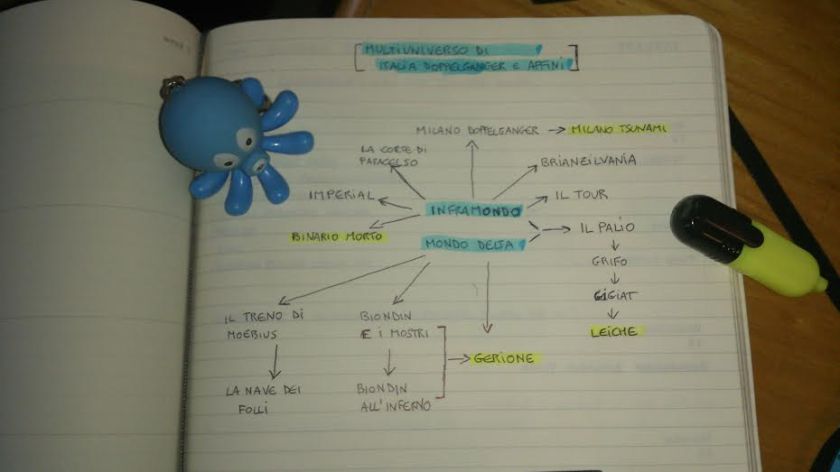 [MULTIUNIVERSO DI
ITALIA DOPPELGANGER E AFFINI]
MILANO DOPPELGANGER → MILANO TSUNAMI
LA CORTE DI
PARACELSO
BRIANSILVANIA
IMPERIAL
IL TOUR
INFRAMONDO
BINARIO MORTO
IL PALIO
MONDO DELTA
GRIFO
GIGIAT
LEICHE
IL TRENO DI
MOEBIUS
BIONDIN
E I MOSTRI
GERIONE
LA NAVE DEI
FOLLI
BIONDIN
ALL'INFERNO